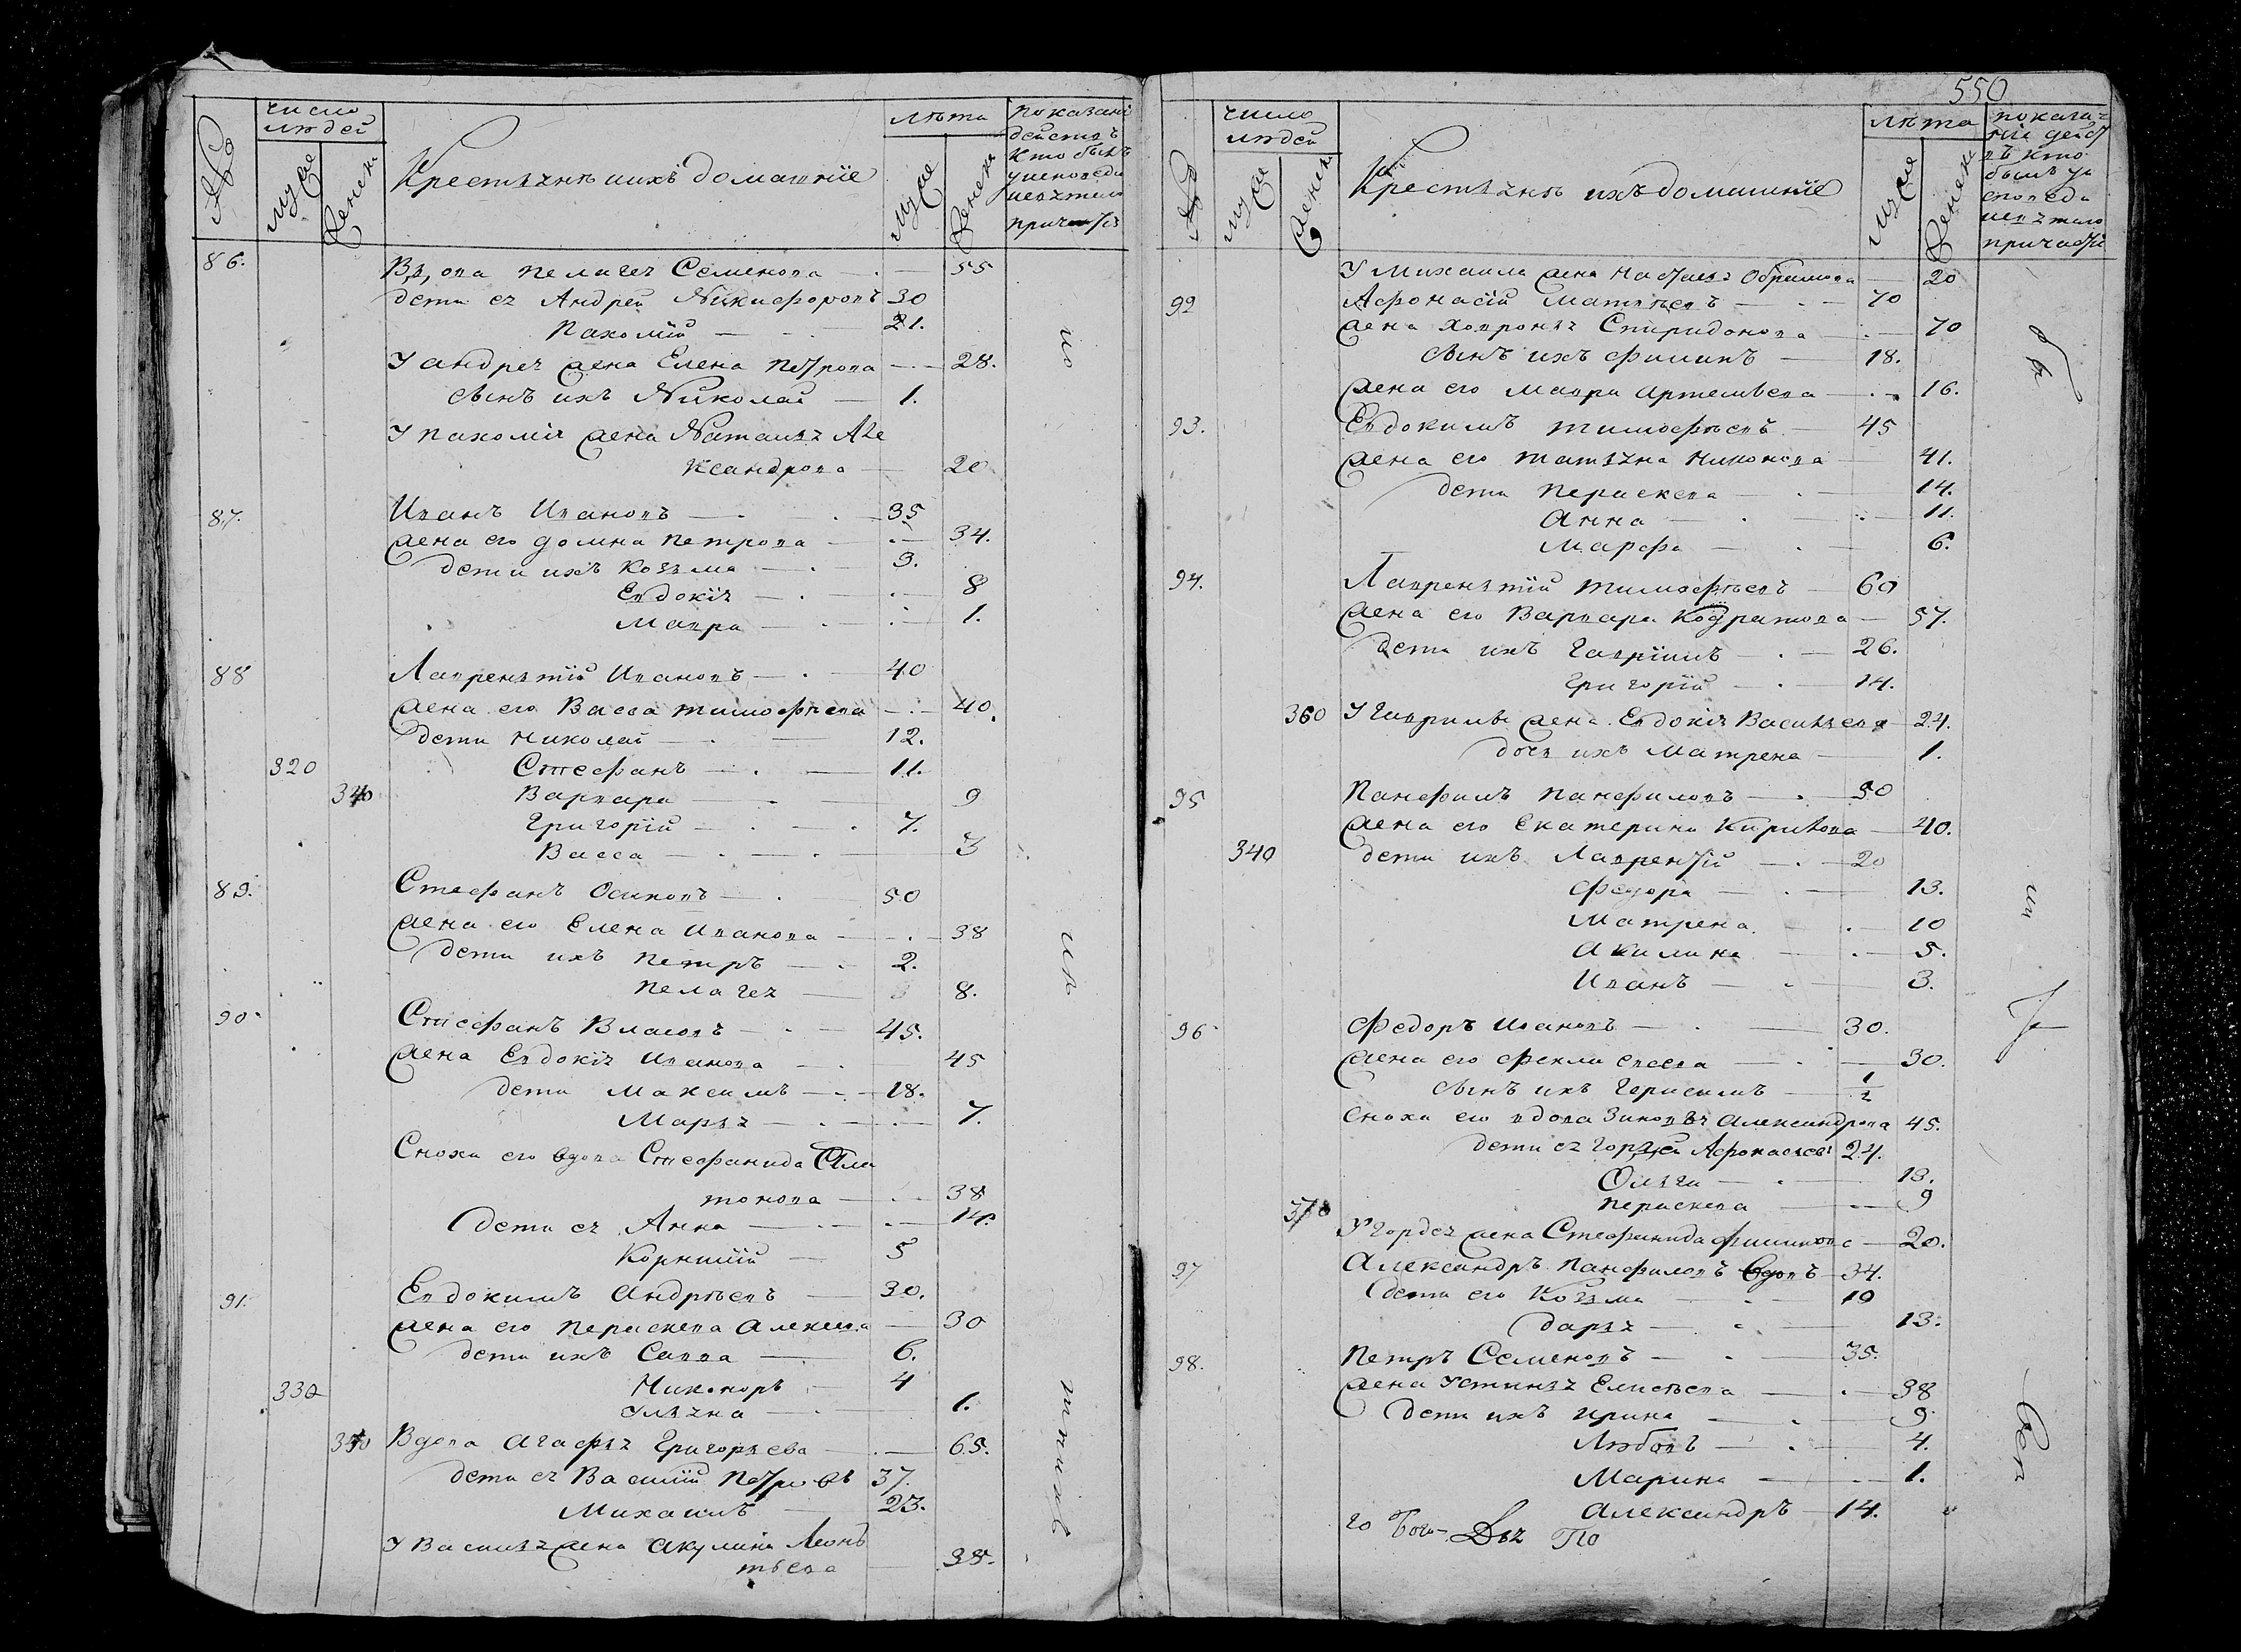 число людей
№
муж
женск
Крестьянѣ и ихъ домашніе
лѣта
муж
женск
показаніе действъ кто былъ у исповеди и святаго причастія
86.
Вдова Пелагея Семенова 55
дети ея Андрей Никифоровъ 30
Пахомій 21.
У андрея жена Елена Петрова 28.
сынъ ихъ Николай 1.
У пахомія жена Наталья Але
ксандрова 20
87. Иванъ Ивановъ 35
жена его домна петрова 34.
дети ихъ Козьма 3.
Евдокія 8
Мавра 1.
88 Лаврентій Ивановъ 40
жена его Васса тимофеева 40.
дети Николай 12.
320 Стефанъ 11.
340 Варвара 9
Григорій 7.
Васса 3
89. Стефанъ Осиповъ 50
жена его Елена Иванова 38
дети ихъ петръ 2.
Пелагея 8.
90. Стефанъ Власовъ 45.
жена Евдокія Иванова 45
дети Максимъ 18.
Марья 7.
Сноха его вдова Стефанида Пла
тонова 38
дети ея Анна 14.
Корнилій 5
91. Евдокимъ Андрѣевъ 30.
жена его Параскева Алексева 30
дети ихъ Савва 6.
330 Никоноръ 4
Ульяна 1.
350 Вдова Агафья Григорьева 65.
дети ея Василій Петровъ 37.
Михаилъ 23.
У Василья жена Акулина Леонъ
тьева 38.
550
№
число людей
муж
женск
Крестьянѣ ихъ домашніе
лѣта
муж
женск
показаніе действъ кто былъ у исповеди и святаго причастія
У Михаила жена Настасья Обрамова 20
92 Афонасій Матвѣевъ 70
жена Ховронья Спиридонова 70
сынъ ихъ Филипъ 18.
жена его Мавра Артемьева 16.
93. Евдокимъ тимофѣевъ 45
жена его татьяна Никонова 41.
дети Пераскева 14.
Анна 11.
Марфа 6.
94. Лаврентій Тимофѣевъ 60
жена его Варвара Кодратова 57.
дети ихъ Гавріилъ 26.
Григорій 14.
360 У Гаврилы жена Евдокія Васильева 24.
дочь ихъ Матрена 1.
95 Панфилъ Панфиловъ 50
жена его Екатерина Кирилова 40.
340 дети ихъ Лаврентій 20
Федора 13.
Матрена 10
Акилина 5.
Иванъ 3.
96 Федоръ Ивановъ 30.
жена его Фекла 30.
сынъ ихъ Герасимъ 1/2
Сноха его вдова Зиновья Александрова 45.
дети ея Гордей Афонасьевъ 24.
Ольга 13.
370 Пераскева 9
У Гордея жена Стефанида Филипова 20.
97 Александръ Панфиловъ вдовъ 34.
дети его Козьма 10
Дарья 13.
98. Петръ Семеновъ 35.
жена Устинья Елисѣева 38
дети ихъ Ирина 9.
Любовь 4.
Марина 1.
Александръ 14.